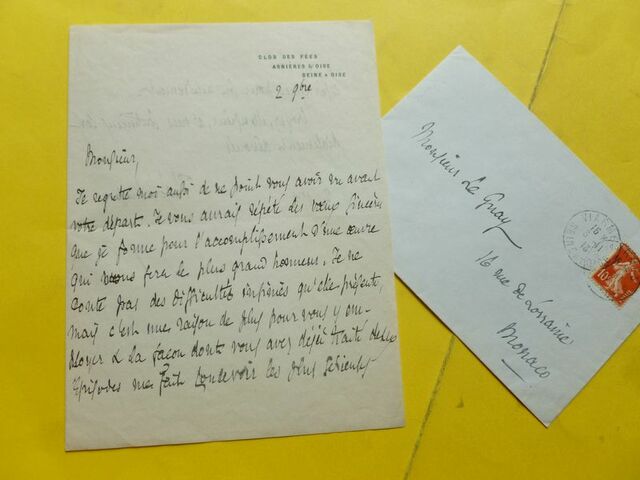 CLOS DES FÉES
ASNIÈRES S/ OISE
SEINE & OISE
2 9bre
Monsieur,
Je regrette moi aussi de ne point vous avoir vu avant
votre départ. Je vous aurais répété les vœux sincères
que je forme pour l'accomplissement d'une œuvre
qui vous fera le plus grand honneur. Je ne
doute pas des difficultés infinies qu'elle présente,
mais c'est une raison de plus pour vous y em-
ployer & la façon dont vous avez déjà traité
épisodes me fait concevoir les plus sérieuses
Monsieur Le Guay
16 rue de Lorraine
Monaco
VIARMES
16
10